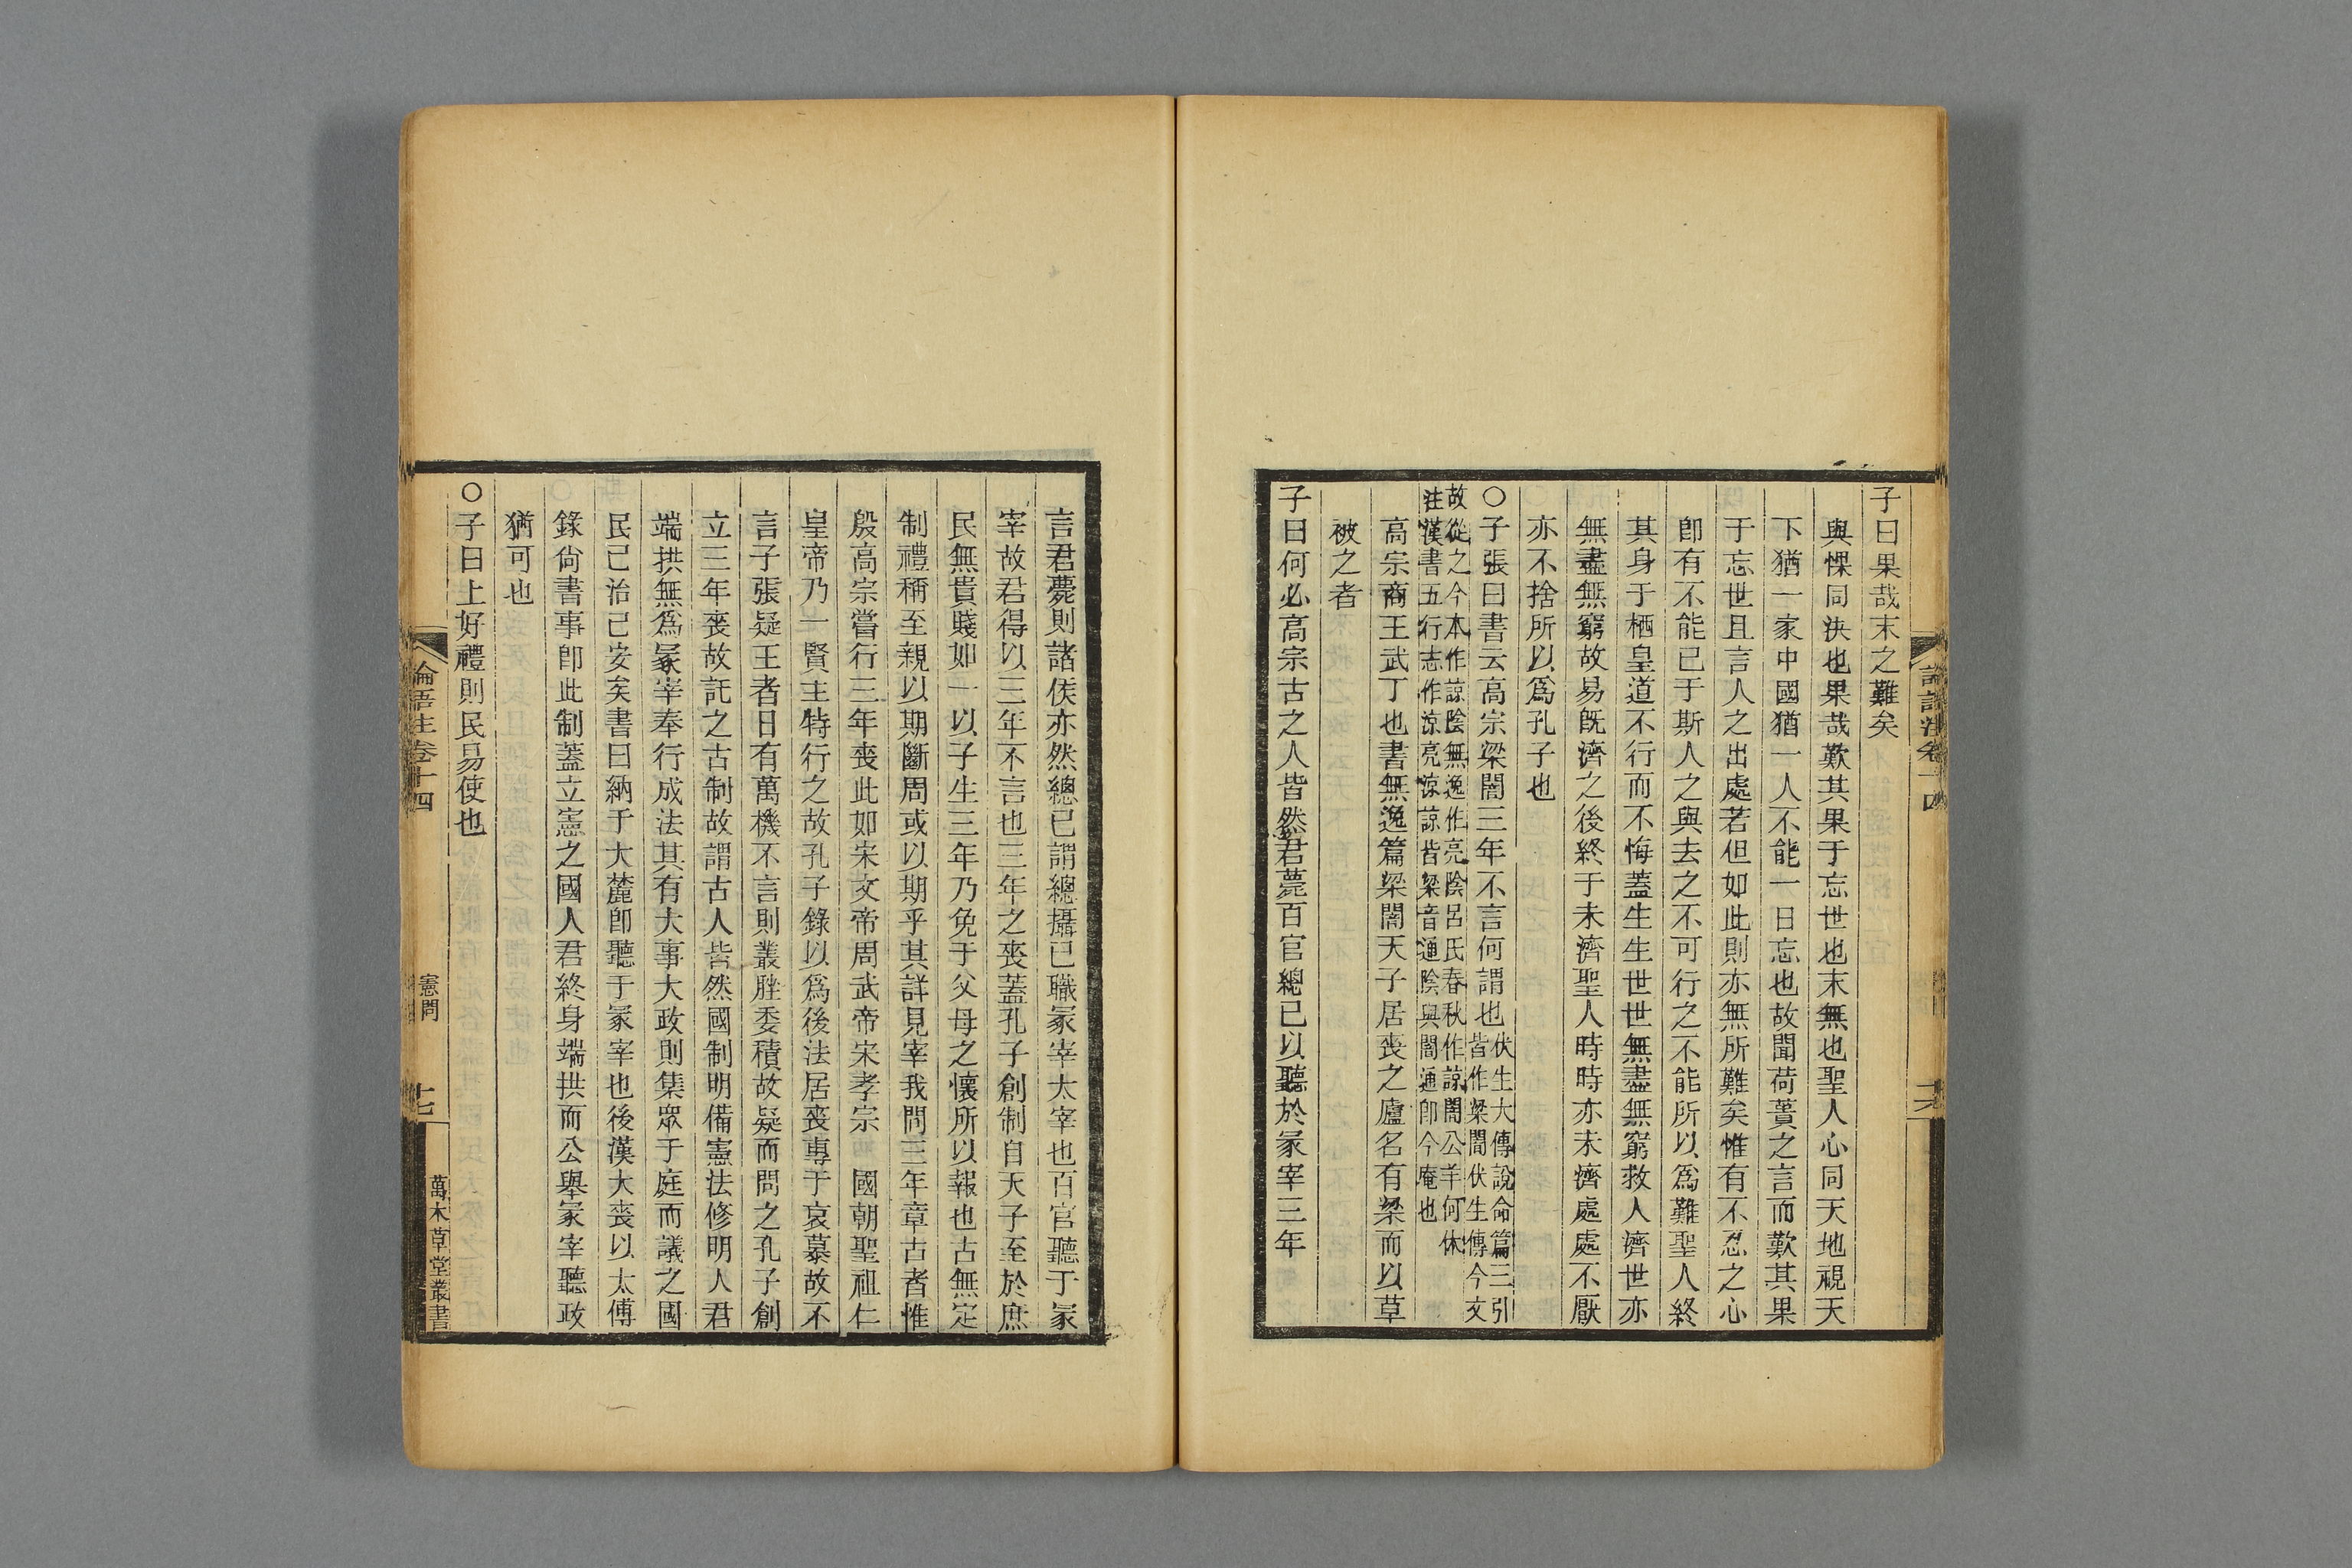 子曰果哉末之難矣
與惈同決也果哉歎其果于忘世也末無也聖人心同天地視天
下猶一家中國猶一人不能一日忘也故聞荷蕢之言而歎其果
于忘世且言人之出處若但如此則亦無所難矣惟有不忍之心
卽有不能已于斯人之與去之不可行之不能所以爲難聖人終
其身于栖皇道不行而不悔蓋生生世世無盡無窮救人濟世亦
無盡無窮故易旣濟之後終于未濟聖人時時亦未濟處處不厭
亦不捨所以爲孔子也
○子張曰書云高宗梁闇三年不言何謂也伏生大傳說命篇三引
皆作梁闇伏生傳今文
故從之今本作諒陰無逸作亮陰呂氏春秋作諒闇公羊何休
注漢書五行志作涼亮涼諒皆梁音通陰與闇通卽今庵也
高宗商王武丁也書無逸篇梁闇天子居喪之廬名有梁而以草
被之者
子曰何必高宗古之人皆然君薨百官總已以聽於冢宰三年
論語注卷十四
言君薨則諸侯亦然總已謂總攝已職冢宰太宰也百官聽于冢
宰故君得以三年不言也三年之喪蓋孔子創制自天子至於庶
民無貴賤如一以子生三年乃免于父母之懷所以報也古無定
制禮稱至親以期斷周或以期乎其詳見宰我問三年章古者惟
殷高宗嘗行三年喪此如宋文帝周武帝宋孝宗 國朝聖祖仁
皇帝乃一賢主特行之故孔子錄以爲後法居喪專于哀慕故不
言子張疑王者日有萬機不言則叢脞委積故疑而問之孔子創
立三年喪故託之古制故謂古人皆然國制明備憲法修明人君
端拱無爲冢宰奉行成法其有大事大政則集眾于庭而議之國
民已治已安矣書曰納于大麓卽聽于冢宰也後漢大喪以太傅
錄尙書事卽此制蓋立憲之國人君終身端拱而公舉冢宰聽政
猶可也
○子曰上好禮則民易使也
論語注卷十四
憲問
十七
萬木草堂叢書